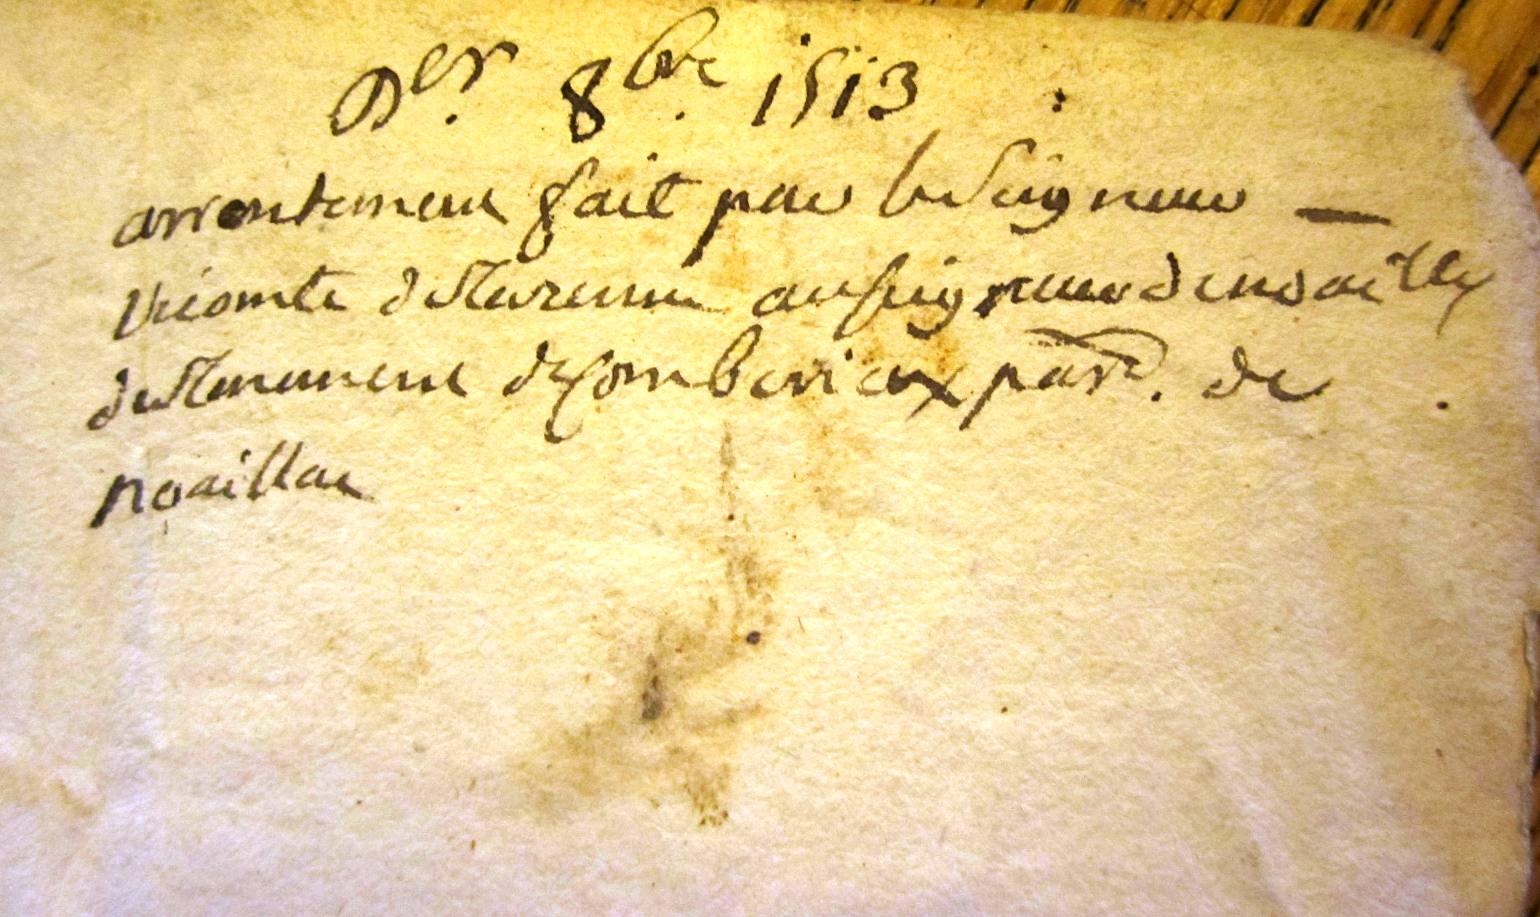 Der. 8bre. 1513
arrentement fait par le Seigneur —
Vicomte de Turenne au seigneur de noailles
du tenement de Comberieux parse. de
noaillac